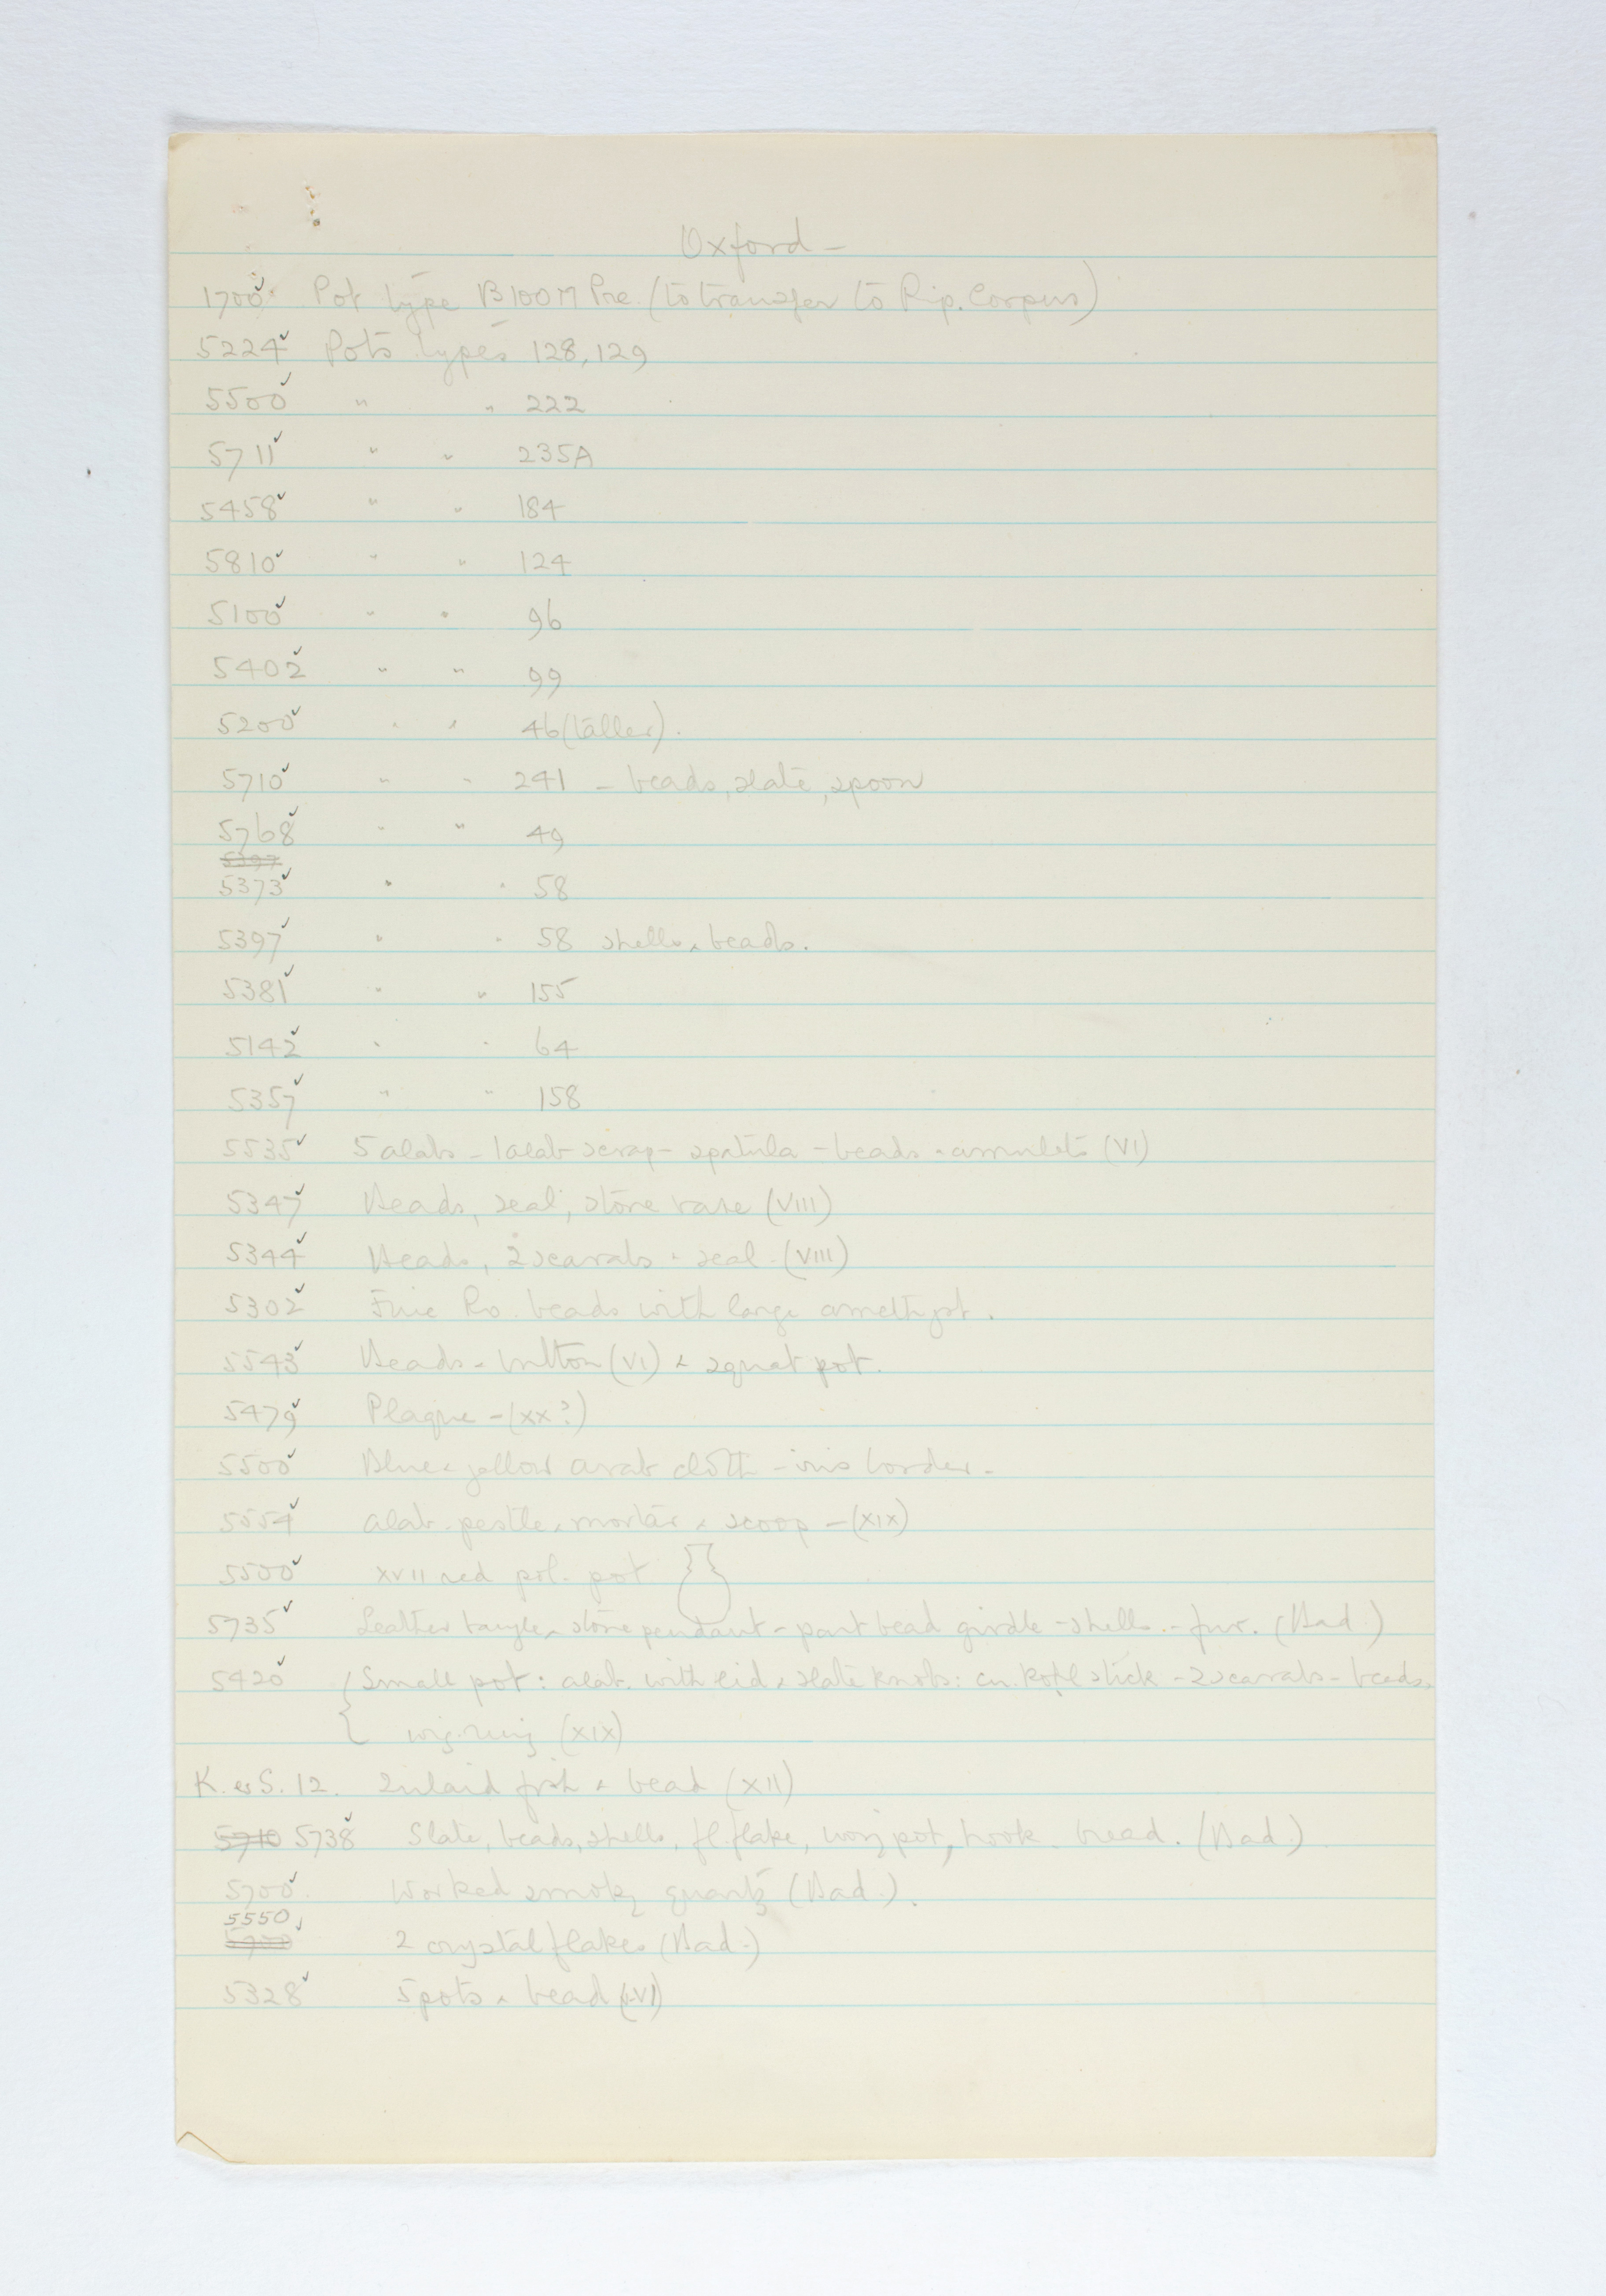 Oxford –
1700 ✓ Pot type B 100 M Pre. (to transfer to Rip. Corpus)
5224 ✓ Pots types 128, 129
5500 ✓ " " 222
5711 ✓ " " 235A
5458 ✓ " " 184
5810 ✓ " " 124
5100 ✓ " " 96
5402 ✓ " " 99
5200 ✓ " " 46 (taller).
5710 ✓ " " 241 – beads, slate, spoon
5768 ✓ " " 49
5397
5373 ✓ " " 58
5397 ✓ " " 58 shells & beads.
5381 ✓ " " 155
5142 ✓ " " 64
5357 ✓ " " 158
5535 ✓ 5 alabs – 1 alab scrap – spatula – beads & amulets (VI)
5347 ✓ Beads, seal, stone vase (VIII)
5344 ✓ Beads, 2 scarabs & seal – (VIII)
5302 ✓ Fine Ro. beads with large amethyst.
5543 ✓ Beads & button (VI) & squat pot.
5479 ✓ Plaque – (XX?)
5500 ✓ Blue & yellow arab cloth – border –
5554 ✓ alab. pestle, mortar & scoop – (XIX)
5500 ✓ XVII red pol. pot
5735 ✓ Leather & stone pendant – part bead girdle – shells – fur. (Bad.)
5420 ✓ Small pot: alab. with lid & slate knobs: cu. kohl stick – 2 scarabs – beads,
wig-ring (XIX)
K. & S. 12. 2 inlaid fish & bead (XII)
5710 5738 ✓ Slate, beads, shells, fl. flake, ivory pot, hook – bread. (Bad.)
5700 ✓ Worked smoky quartz (Bad.).
5550 ✓
5700 2 crystal flakes (Bad.)
5328 ✓ 5 pots & bead (VI)